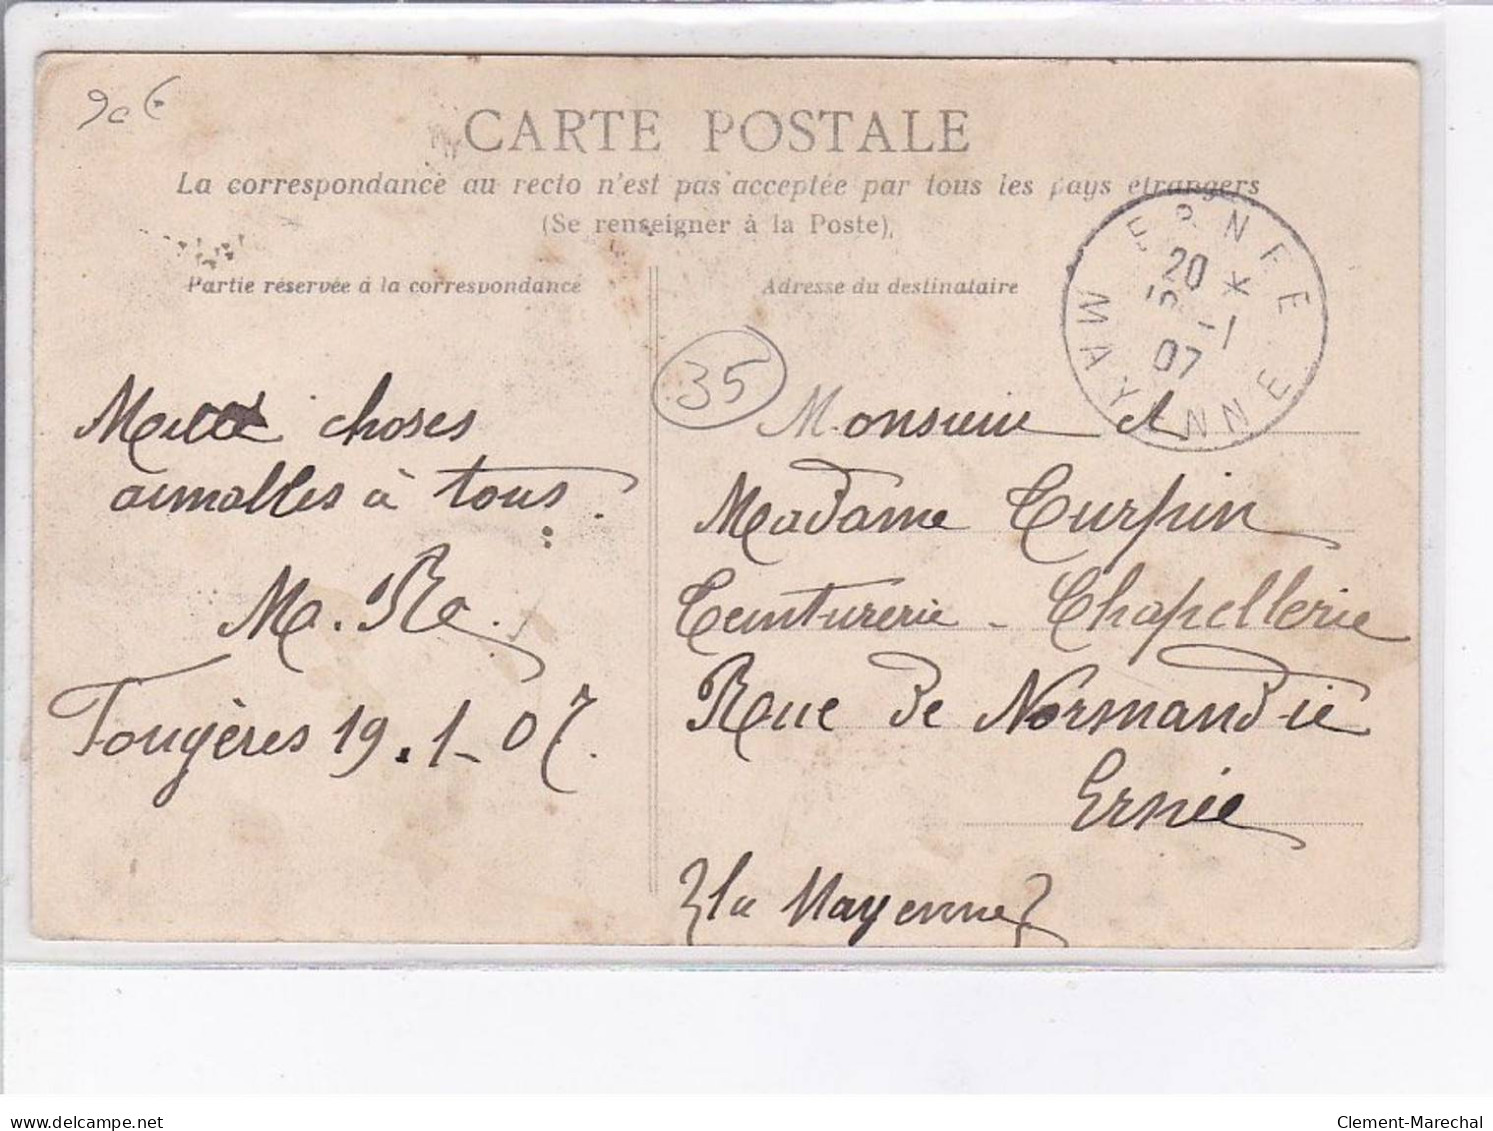 90€
CARTE POSTALE
La correspondance au recto n'est pas acceptée par tous les pays étrangers
(Se renseigner à la Poste)
Partie réservée à la correspondance
Adresse du destinataire
ERNEE
20 *
-1
07
MAYENNE
35
choses
aimables à tous.
Ma. Re.
Fougères 19.1-07.
Monsieur et
Madame Turpin
Teinturerie - Chapellerie
Rue de Normandie
Ernée
la Mayenne
delcampe.net
Clement-Marechal